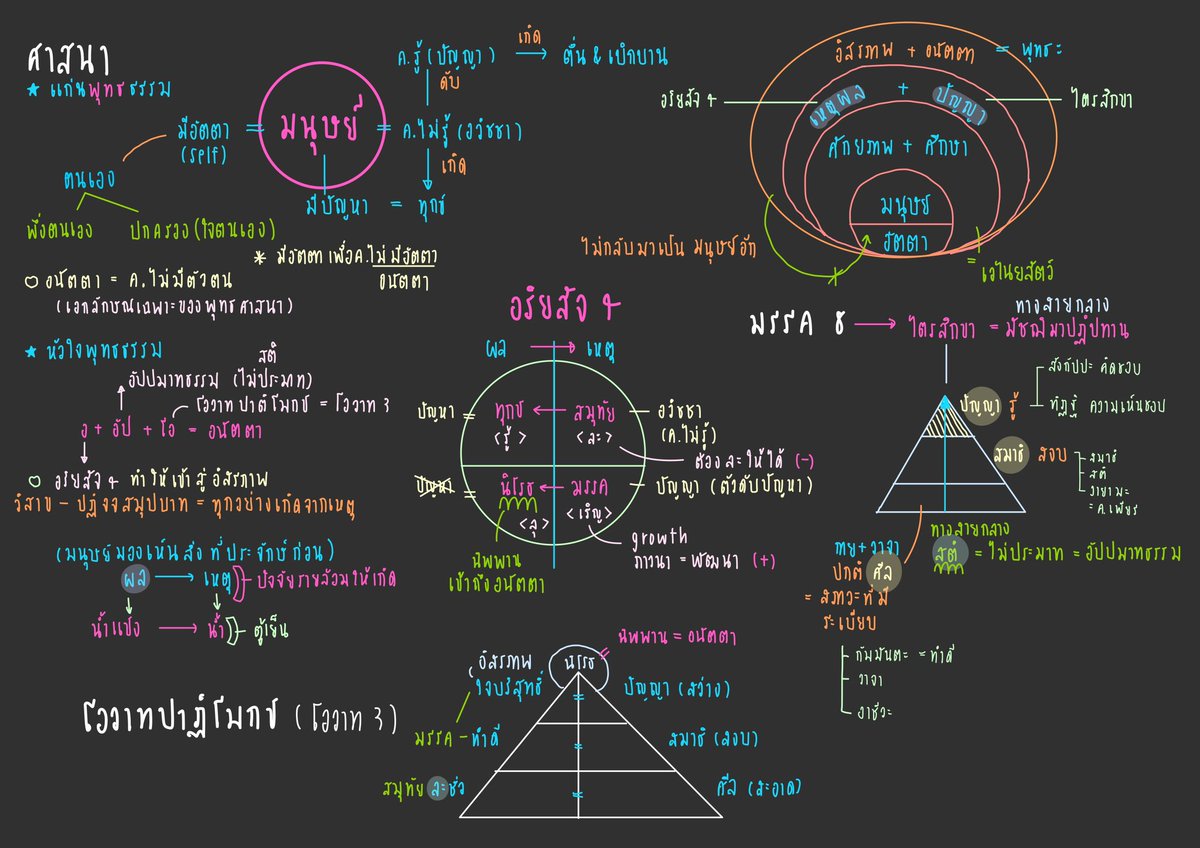 ศาสนา
★ แก่นพุทธธรรม
มีอัตตา = มนุษย์ = ค.ไม่รู้ (อวิชชา)
(self)
ค.รู้ (ปัญญา) เกิด → ตื่น & เบิกบาน
ดับ
เกิด
มีปัญหา = ทุกข์
ตนเอง
พึ่งตนเอง ปกครอง (ใจตนเอง)
* มีอัตตาเพื่อค.ไม่มีอัตตา
อนัตตา
○ อนัตตา = ค.ไม่มีตัวตน
(เอกลักษณ์เฉพาะของพุทธศาสนา)
★ หัวใจพุทธธรรม
สติ
อัปปมาทธรรม (ไม่ประมาท)
โอวาทปาติโมกข์ = โอวาท 3
อ + อัป + โอ = อนัตตา
○ อริยสัจ 4 ทำให้เข้าสู่อิสรภาพ
วิสาข - ปฏิจจสมุปบาท = ทุกอย่างเกิดจากเหตุ
(มนุษย์มองเห็นสิ่งที่ประจักษ์ก่อน)
ผล → เหตุ }- ปัจจัยรายล้อมให้เกิด
น้ำแข็ง → น้ำ }- ตู้เย็น
อิสรภาพ + อนัตตา = พุทธะ
อริยสัจ 4 เหตุผล + ปัญญา ไตรสิกขา
ศักยภาพ + ศึกษา
มนุษย์
อัตตา
ไม่กลับมาเป็นมนุษย์อีก
= เวไนยสัตว์
อริยสัจ 4
ผล → เหตุ
ปัญหา = ทุกข์ ← สมุทัย - อวิชชา
<รู้> <ละ> (ค.ไม่รู้)
ต้องละให้ได้ (-)
ปัญหา = นิโรธ ← มรรค - ปัญญา (ตัวดับปัญหา)
<ลุ> <เจริญ>
growth
ภาวนา = พัฒนา (+)
นิพพาน
เข้าถึงอนัตตา
ทางสายกลาง
มรรค 8 → ไตรสิกขา = มัชฌิมาปฏิปทาน
ปัญญา รู้
สังกัปปะ คิดชอบ
ทิฏฐิ ความเห็นชอบ
สมาธิ สงบ
สมาธิ
สติ
วายามะ
= ค.เพียร
กาย + วาจา
ปกติ ศีล
= สภาวะที่มี
ระเบียบ
กัมมันตะ = ทำดี
วาจา
อาชีวะ
ทางสายกลาง
สติ = ไม่ประมาท = อัปปมาทธรรม
โอวาทปาฏิโมกข์ (โอวาท 3)
นิพพาน = อนัตตา
นิโรธ
อิสรภาพ
ใจบริสุทธิ์ = ปัญญา (สว่าง)
มรรค - ทำดี = สมาธิ (สงบ)
สมุทัย ละชั่ว = ศีล (สะอาด)